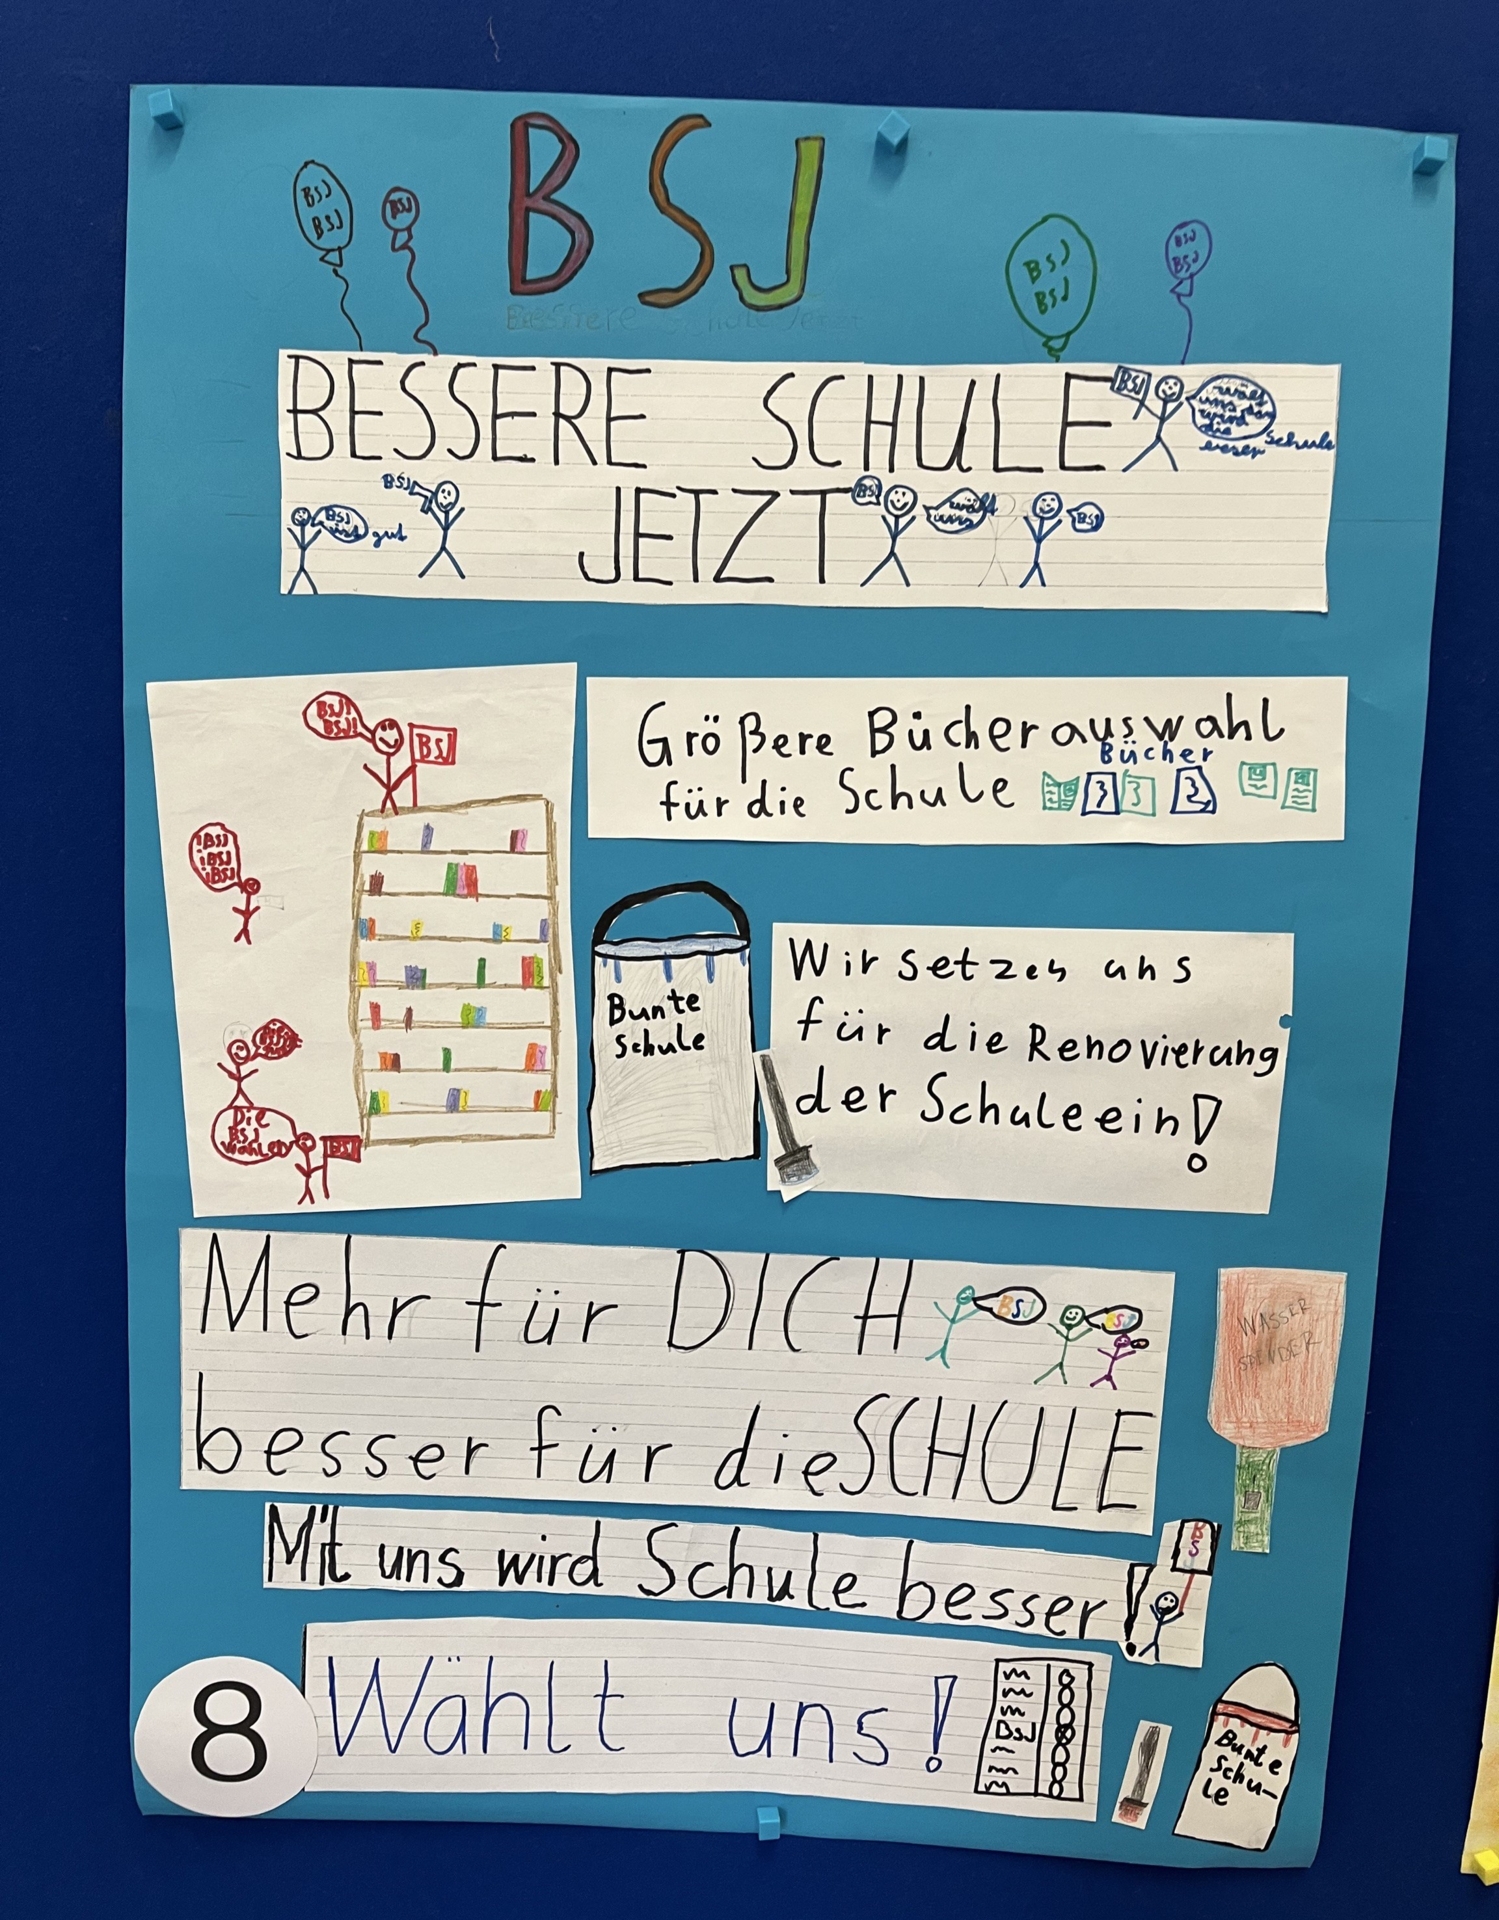 BSJ
BSJ
BSJ
BSJ
BSJ
BSJ
BSJ
BSJ
Bessere Schule Jetzt
BESSERE SCHULE
BSJ
wählt
uns dan
wird
die
Schule
JETZT
BSJ
ist gut
BSJ
BSJ
wählt
uns
BSJ
BSJ!
BSJ!
BSJ
!BSJ
!BSJ
!BSJ
Die
BSJ
wählen
BSJ
Größere Bücherauswahl
Bücher
für die Schule
Bunte
Schule
Wir setzen uns
für die Renovierung
der Schule ein!
Mehr für DICH
BSJ
BSJ
besser für die SCHULE
WASSER
SPENDER
Mit uns wird Schule besser!
BS
8
Wählt uns!
BSJ
Bunte
Schu-
le